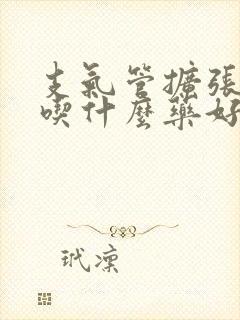 支氣管擴張
喫什麼藥好
玳凜